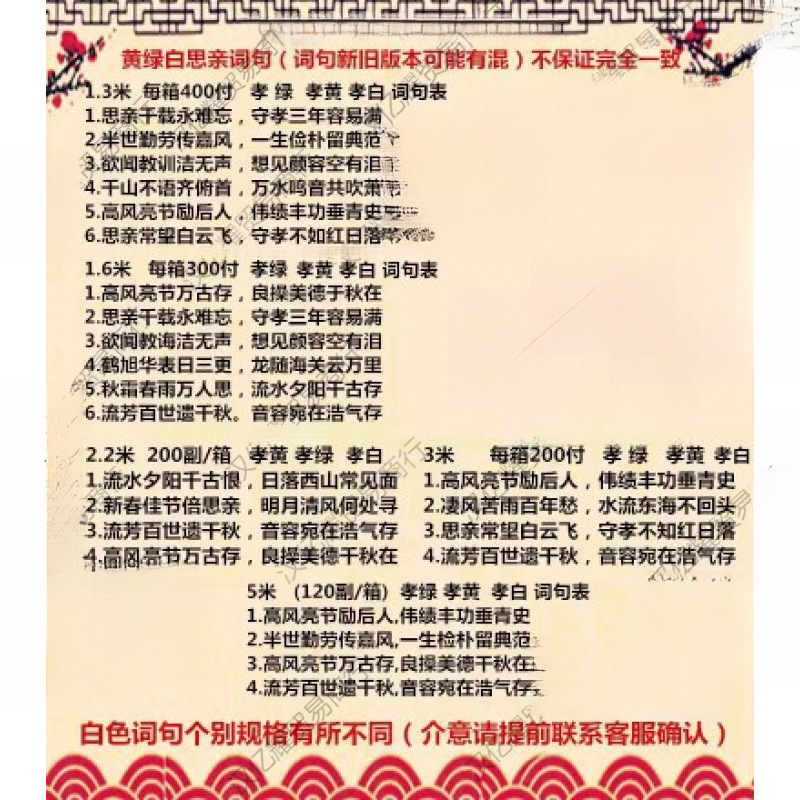 黄绿白思亲词句（词句新旧版本可能有混）不保证完全一致
1.3米 每箱400付 孝绿 孝黄 孝白 词句表
1.思亲千载永难忘，守孝三年容易满
2.半世勤劳传嘉风，一生俭朴留典范
3.欲闻教训洁无声，想见颜容空有泪
4.千山不语齐俯首，万水鸣音共吹萧
5.高风亮节励后人，伟绩丰功垂青史
6.思亲常望白云飞，守孝不如红日落
1.6米 每箱300付 孝绿 孝黄 孝白 词句表
1.高风亮节万古存，良操美德于秋在
2.思亲千载永难忘，守孝三年容易满
3.欲闻教诲洁无声，想见颜容空有泪
4.鹤旭华表日三更，龙随海关云万里
5.秋霜春雨万人思，流水夕阳千古存
6.流芳百世遗千秋。音容宛在浩气存
2.2米 200副/箱 孝黄 孝绿 孝白
1.流水夕阳千古恨，日落西山常见面
2.新春佳节倍思亲，明月清风何处寻
3.流芳百世遗千秋，音容宛在浩气存
4.高风亮节万古存，良操美德千秋在
3米 每箱200付 孝绿 孝黄 孝白
1.高风亮节励后人，伟绩丰功垂青史
2.凄风苦雨百年愁，水流东海不回头
3.思亲常望白云飞，守孝不知红日落
4.流芳百世遗千秋，音容宛在浩气存
5米 (120副/箱) 孝绿 孝黄 孝白 词句表
1.高风亮节励后人,伟绩丰功垂青史
2.半世勤劳传嘉风,一生检朴留典范
3.高风亮节万古存,良操美德千秋在
4.流芳百世遗千秋,音容宛在浩气存
白色词句个别规格有所不同（介意请提前联系客服确认）